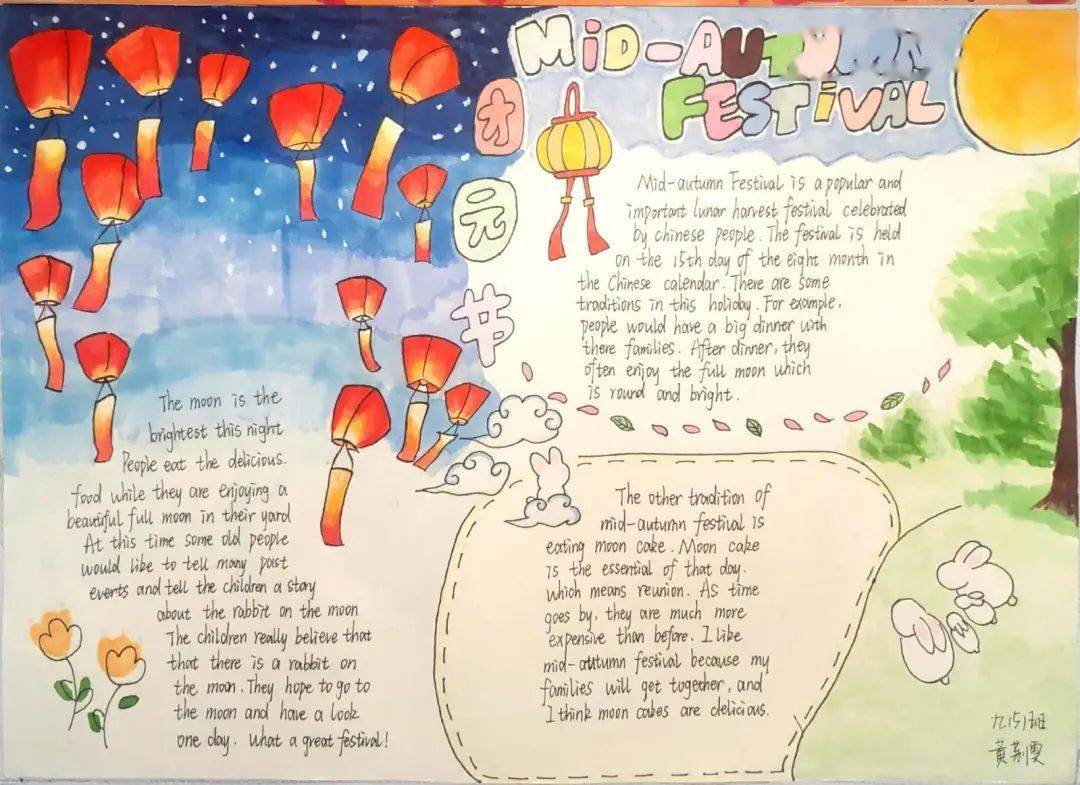 MiD-AUTUMN
FESTiVAL
才
元
节
Mid-autumn Festival is a popular and
important lunar harvest festival celebrated
by chinese people. The festival is held
on the 15th day of the eight month in
the Chinese calendar. There are some
traditions in this holiday. For example,
people would have a big dinner with
there families. After dinner, they
often enjoy the full moon which
is round and bright.
The moon is the
brightest this night
People eat the delicious.
food while they are enjoying a
beautiful full moon in their yard
At this time some old people
would like to tell many past
events and tell the children a story
about the rabbit on the moon
The children really believe that
that there is a rabbit on
the moon. They hope to go to
the moon and have a look
one day. What a great festival!
The other tradition of
mid-autumn festival is
eating moon cake. Moon cake
is the essential of that day.
which means reunion. As time
goes by, they are much more
expensive than before. I like
mid-autumn festival because my
families will get together, and
I think moon cakes are delicious.
九(5)班
黄荆雯